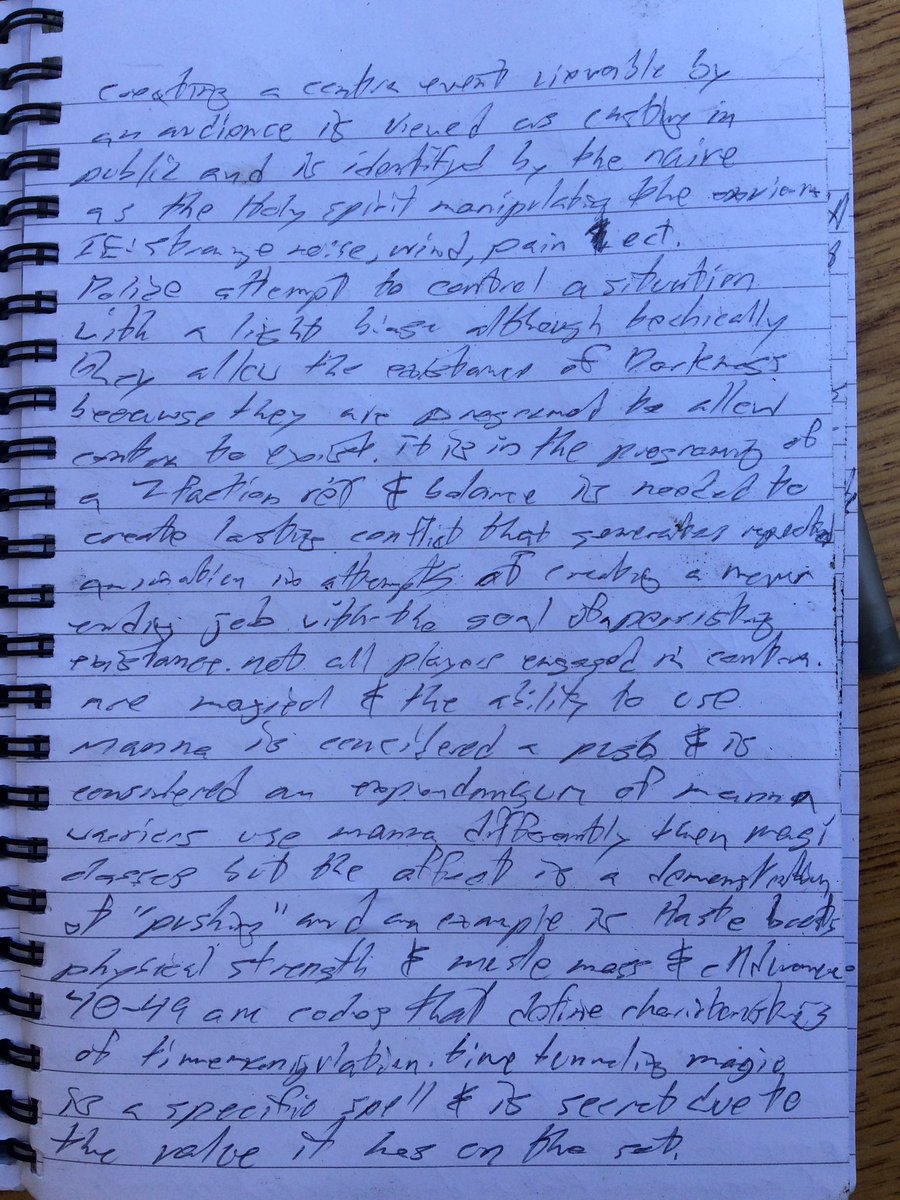 creating a contra event viewable by
an audience is viewed as casting in
public and is identifyd by the naive
as the Holy spirit manipulating the
IE: strange noise, wind, pain ect.
Police attempt to control a situation
with a light bias although techically
They allow the existance of Darkness
because they are programed to allow
contra to exist. it is in the programing of
a 2 faction set & balance is needed to
create lasting conflict that generates repeated
in attempts of creating a never
ending job with the goal of persisting
existance. not all players engaged in contra.
are magied & the ability to use
manna is concidered a push & is
considered an of manna
warriers use manna differantly then magi
classes but the affect is a demonstration
of "pushing" and an example is Haste boosts
physical strength & musle mass & endurance.
40-49 are codes that define charictaristics
of timemanipulation. time tunneling magic
is a specific spell & is secret due to
the value it has on the set.